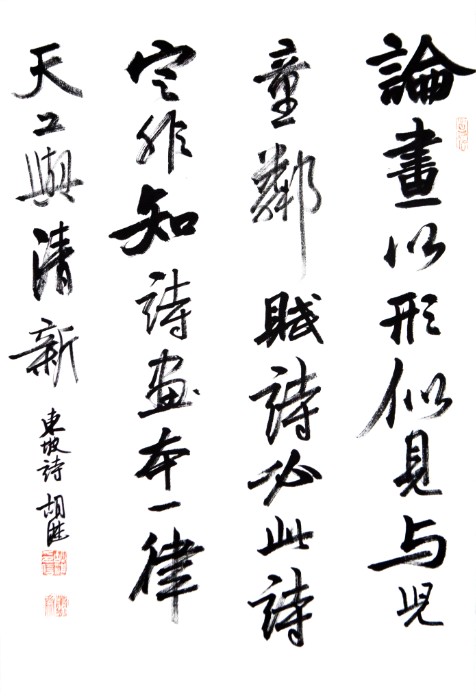 論畫以形似見与児
童鄰賦詩必此詩
定非知詩画本一律
天工與清新
東坡詩 胡